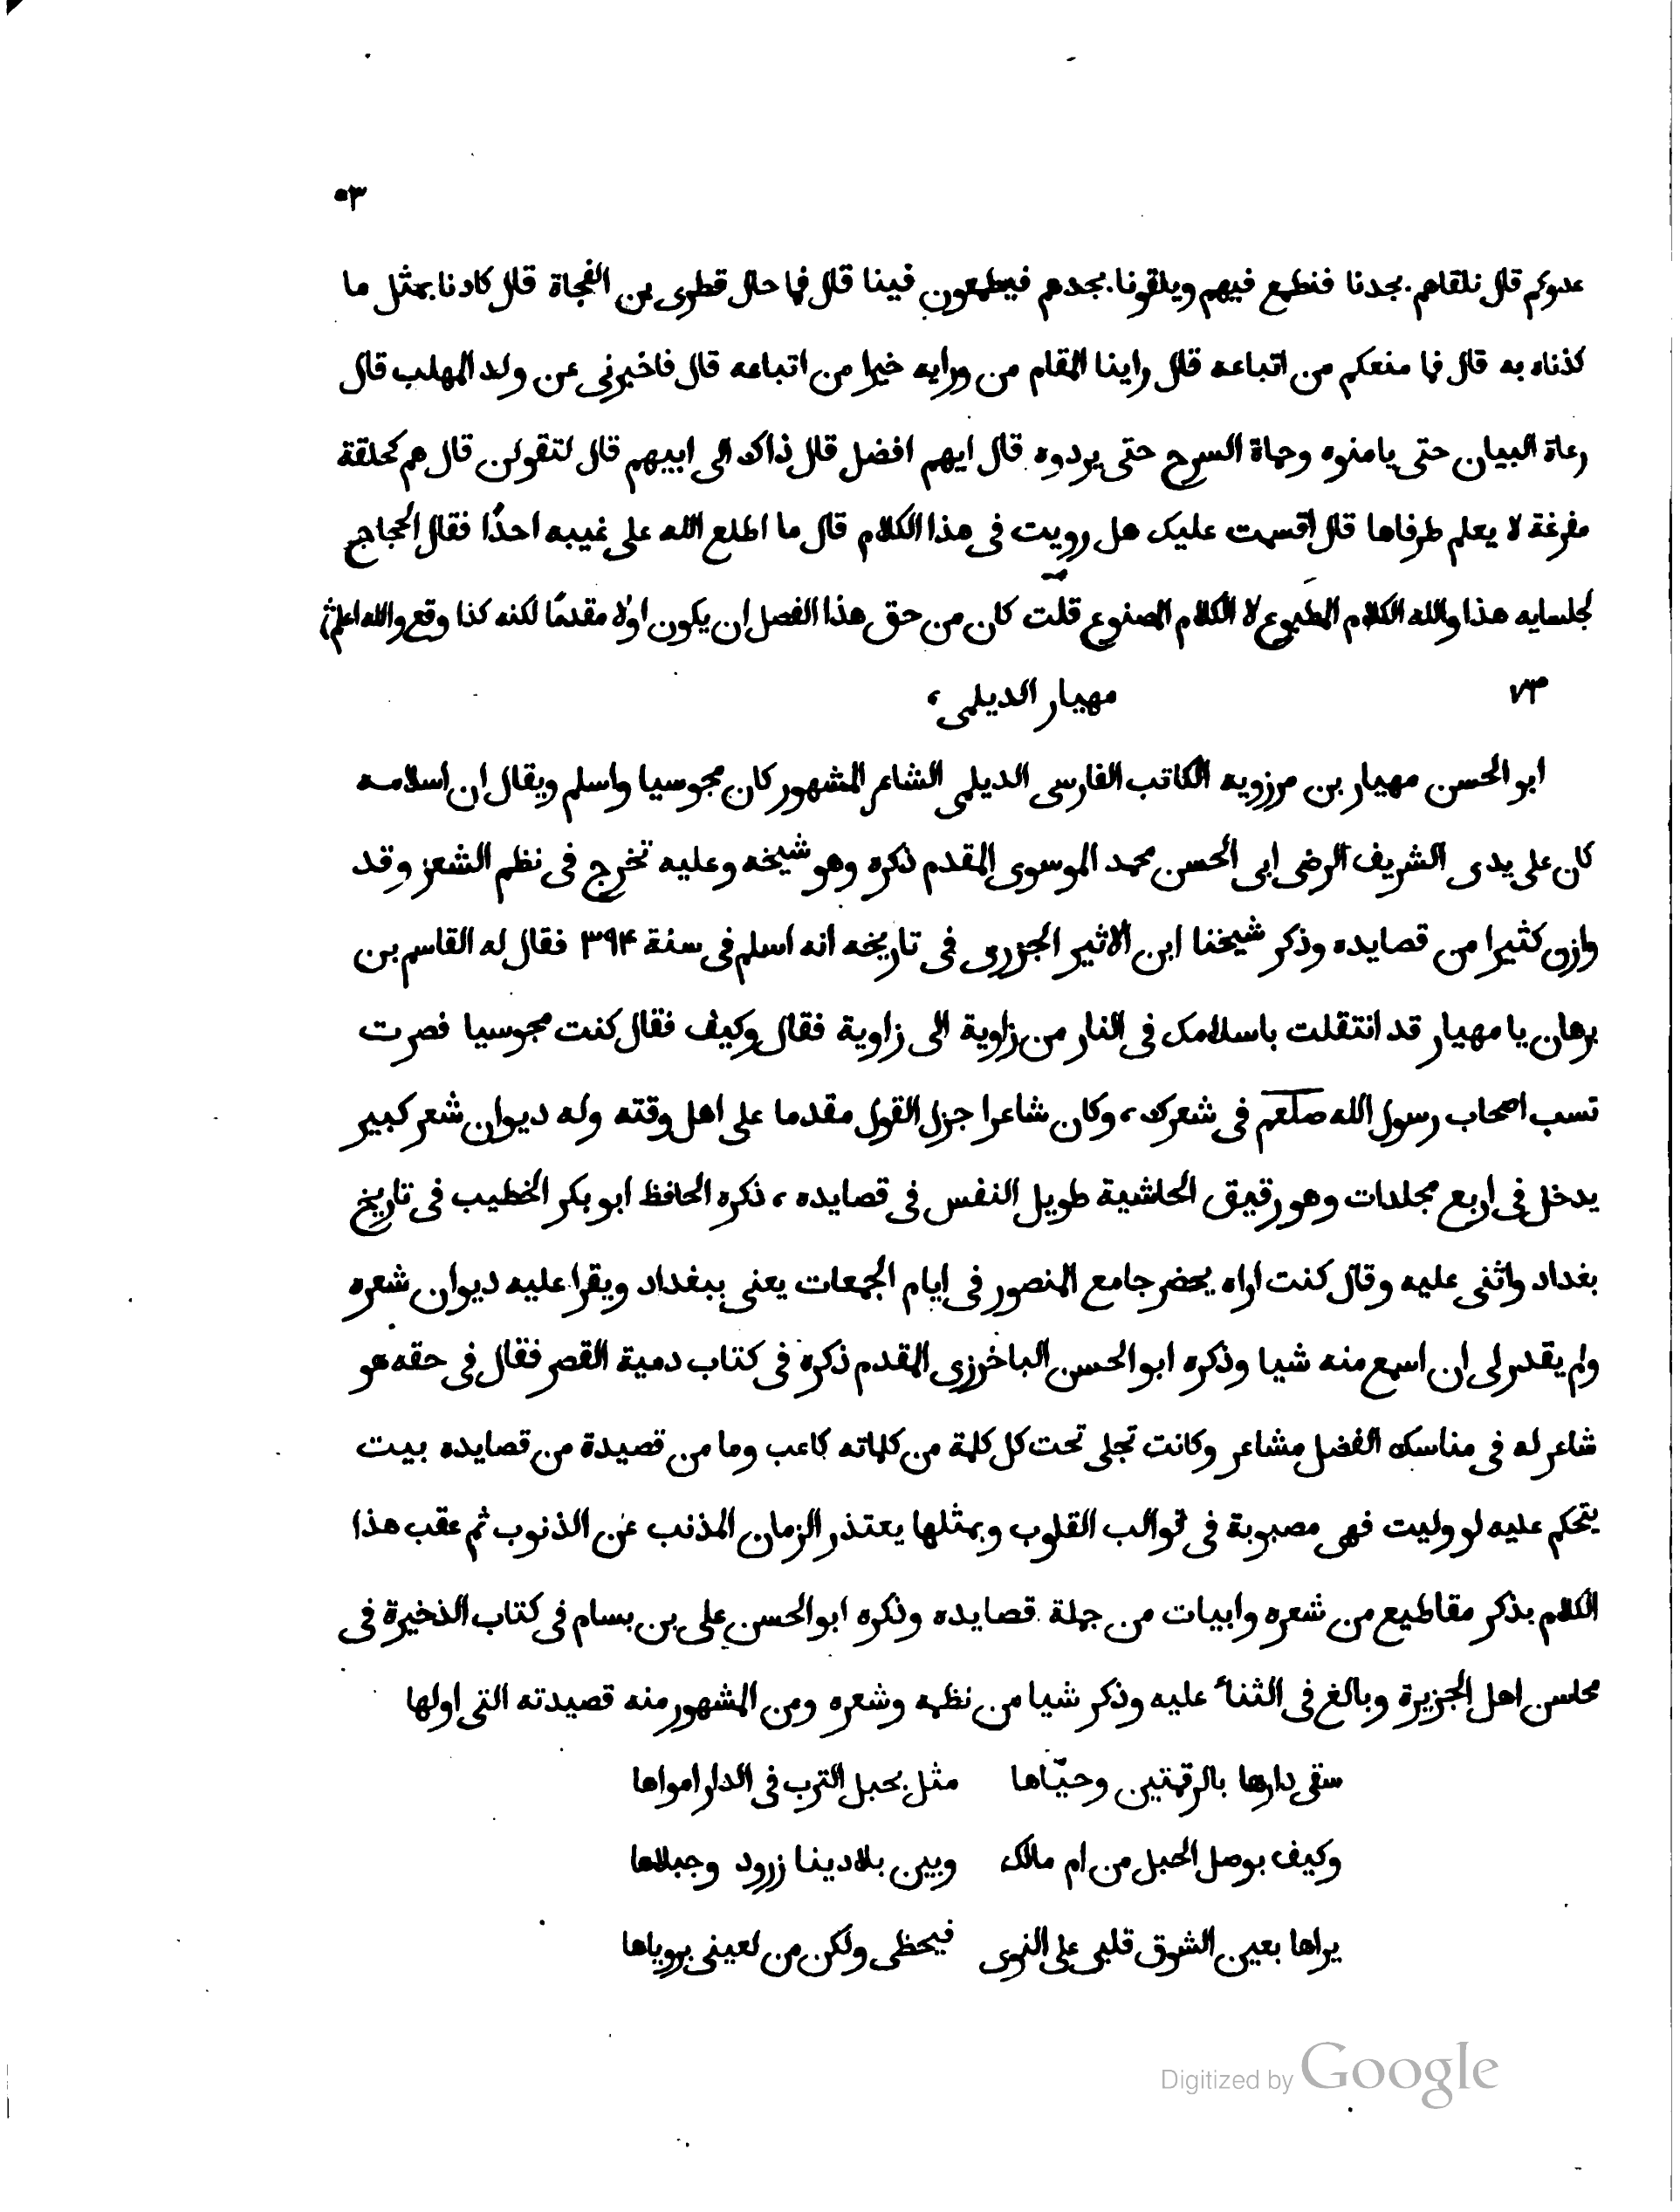 ٥٣
عدوكم قال نلقاهم بجدنا فنطمع فيهم ويلقونا بجدهم فيطمعون فينا قال فما حال قطرى بن الفجاة قال كادنا بمثل ما
كدناه به قال فما منعكم من اتباعه قال راينا المقام من ورايه خيرا من اتباعه قال فاخبرنى عن ولد المهلب قال
رعاة البيان حتى يامنوه وحماة السرح حتى يردوه قال ايهم افضل قال ذاك الى ابيهم قال لتقولن قال هم كحلقة
مفرغة لا يعلم طرفاها قال اقسمت عليك هل رويت فى هذا الكلام قال ما اطلع الله على غيبه احدًا فقال الحجاج
لجلسايه هذا والله الكلام المطبوع لا الكلام المصنوع قلت كان من حق هذا الفصل ان يكون اولا مقدمًا لكنه كذا وقع والله اعلم
٧٣ مهيار الديلمى،
ابو الحسن مهيار بن مرزويه الكاتب الفارسى الديلمى الشاعر المشهور كان مجوسيا واسلم ويقال ان اسلامه
كان على يدى الشريف الرضى ابى الحسن محمد الموسوى المقدم ذكره وهو شيخه وعليه تخرج فى نظم الشعر وقد
وازن كثيرا من قصايده وذكر شيخنا ابن الاثير الجزرى فى تاريخه انه اسلم فى سنة ٣٩۴ فقال له القاسم بن
برهان يا مهيار قد انتقلت باسلامك فى النار من زاوية الى زاوية فقال وكيف فقال كنت مجوسيا فصرت
تسب اصحاب رسول الله صلعم فى شعرك، وكان شاعرا جزل القول مقدما على اهل وقته وله ديوان شعر كبير
يدخل فى اربع مجلدات وهو رقيق الحاشية طويل النفس فى قصايده، ذكره الحافظ ابو بكر الخطيب فى تاريخ
بغداد واثنى عليه وقال كنت اراه يحضر جامع المنصور فى ايام الجمعات يعنى ببغداد ويقرا عليه ديوان شعره
ولم يقدر لى ان اسمع منه شيا وذكره ابو الحسن الباخرزى المقدم ذكره فى كتاب دمية القصر فقال فى حقه هو
شاعر له فى مناسك الفضل مشاعر وكانت تجلى تحت كل كلمة من كلماته كاعب وما من قصيدة من قصايده بيت
يتحكم عليه لو وليت فهى مصبوبة فى قوالب القلوب وبمثلها يعتذر الزمان المذنب عن الذنوب ثم عقب هذا
الكلام بذكر مقاطيع من شعره وابيات من جملة قصايده وذكره ابو الحسن على بن بسام فى كتاب الذخيرة فى
محاسن اهل الجزيرة وبالغ فى الثناء عليه وذكر شيا من نظمه وشعره ومن المشهور منه قصيدته التى اولها
سقى دارها بالرقمتين وحيّاها مثل بحبل الترب فى الدار امواها
وكيف بوصل الحبل من ام مالك وبين بلادينا زرود وجبلاها
يراها بعين الشوق قلبى على النوى فيحظى ولكن من لعينى برؤياها
Digitized by Google